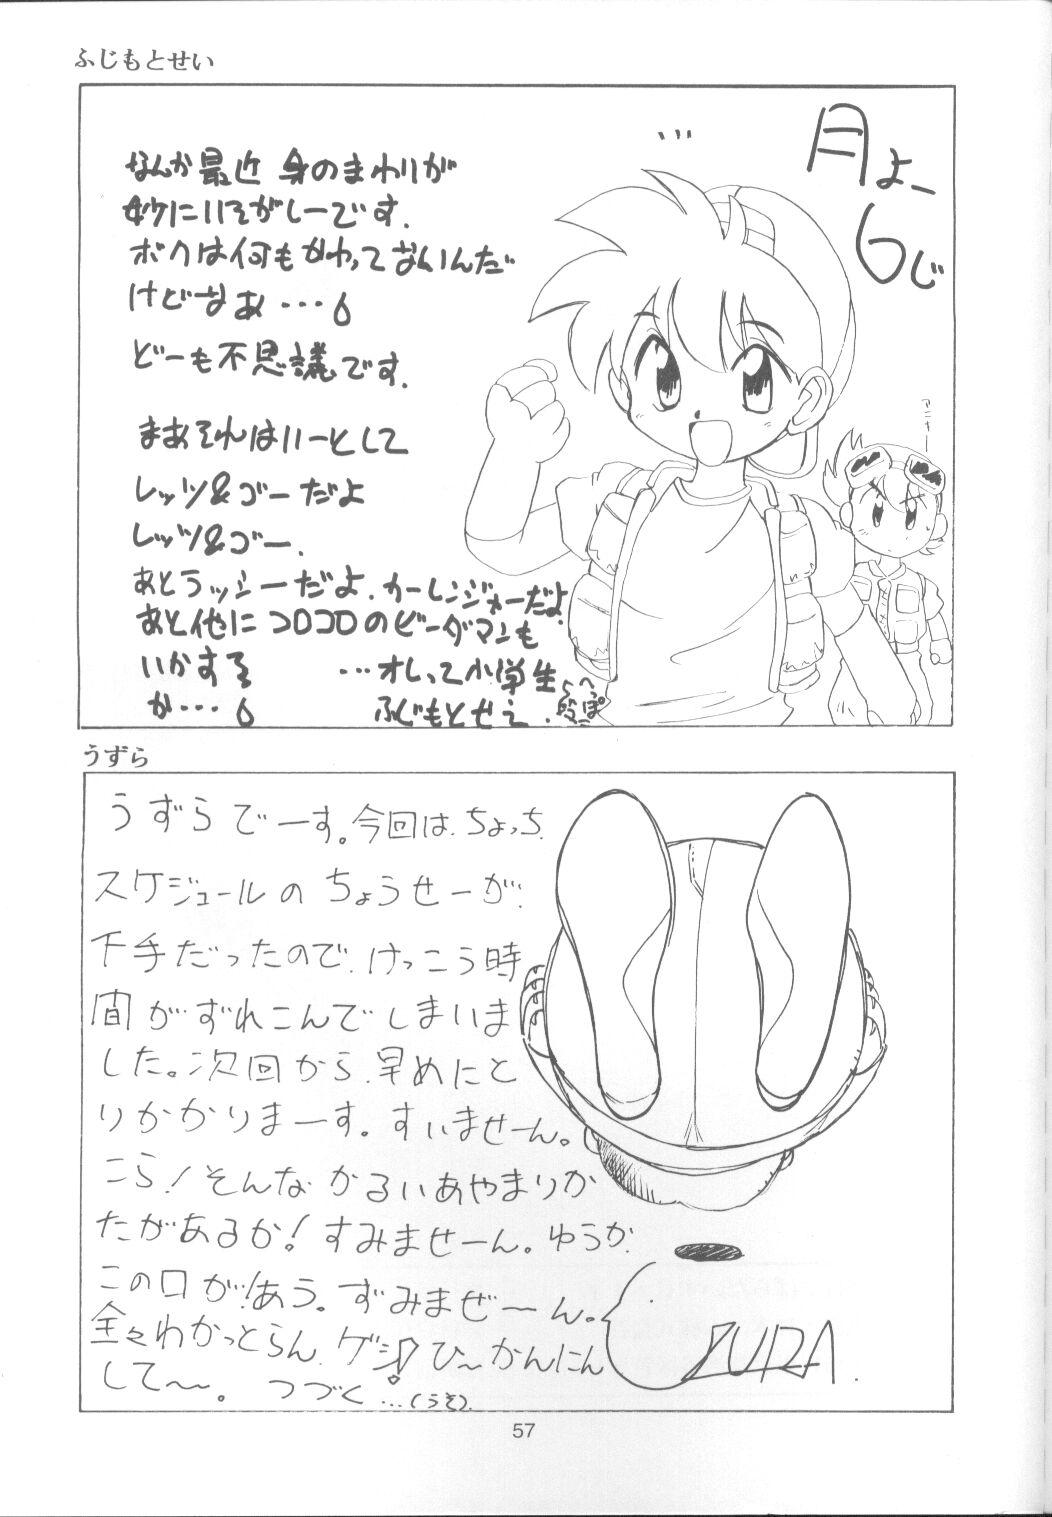 ふじもとせい
月よー
6じ
なんか最近 身のまわりが
妙にいそがしーです.
ボクは何もかわってないんだ
けどなあ・・・
どーも不思議です.
まあそれはいーとして
レッツ&ゴーだよ
レッツ&ゴー.
あとラッシーだよ.カーレンジャーだよ.
あと他にコロコロのビーダマンも
いかする ...オレって小学生
か... ふじもとせえ.
へっぽ
アニキー
うずら
うずらでーす。今回は、ちょっち、
スケジュールのちょうせーが、
下手だったので、けっこう時
間がずれこんでしまいま
した。次回から、早めにと
りかかりまーす。すいませーん。
こら!そんなかるいあやまりか
たがあるか!すみませーん。ゆうか、
この口が!あう。ずみまぜ〜ん。
全々わかっとらん、ゲシ!ひ〜かんにん
して〜〜。つづく...(うそ).
ZURA.
57